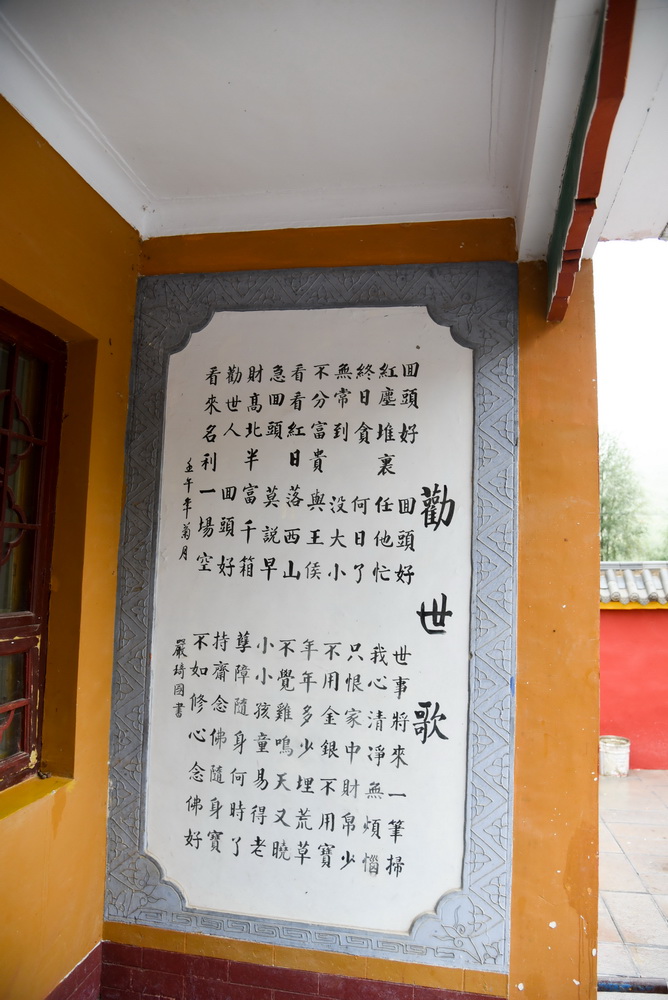 勸世歌
囬頭好 囬頭好 世事將來一筆掃
紅塵堆裏任他忙 我心清淨無煩惱
終日貪 何日了 只恨家中財帛少
無常到 没大小 不用金銀不用寶
不分富貴與王侯 年年多少埋荒草
看看紅日落西山 不覺雞鳴天又曉
急囬頭 莫説早 小小孩童易得老
財髙北半富千箱 孽障隨身何時了
勸世人 囬頭好 持齋念佛隨身寶
看來名利一場空 不如修心念佛好
壬午年菊月 嚴琦國書